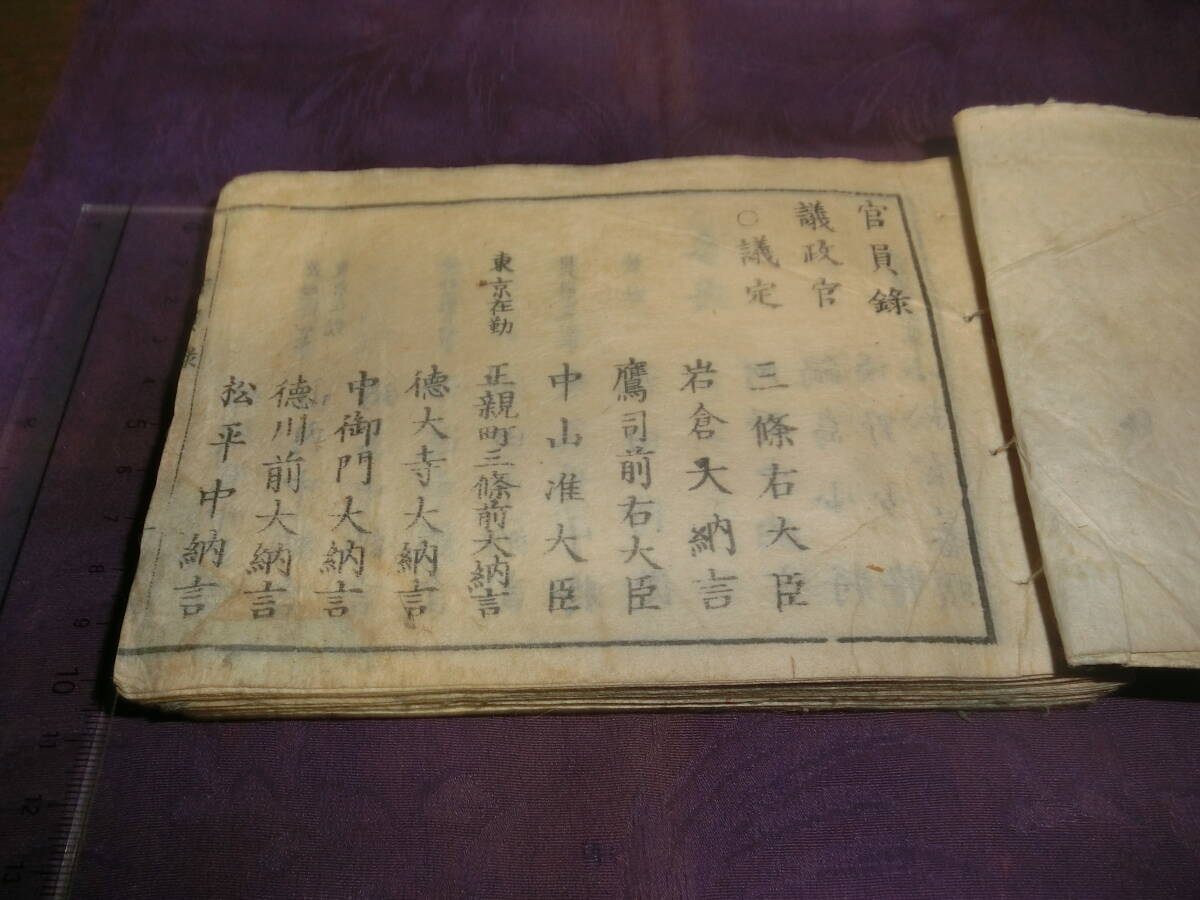 官員錄
議政官
○議定
三條右大臣
岩倉大納言
鷹司前右大臣
中山准大臣
東京在勤 正親町三條前大納言
德大寺大納言
中御門大納言
德川前大納言
松平中納言
錄
2
3
4
5
6
7
8
9
10
11
12
13